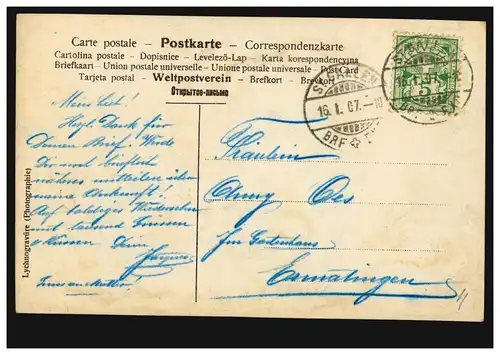 Carte postale – Postkarte – Correspondenzkarte
Cartolina postale – Dopisnice – Levelező-Lap – Karta korespondencyjna
Briefkaart – Union postale universelle – Unione postale universale – Post Card
Tarjeta postal – Weltpostverein – Brefkort – Brevkort
Открытое письмо
ST. GALLEN
16. I. 07. – 10
BRF
5
Mein Lieb!
Herzl. Dank für
Deinen Brief. Werde
Dir noch brieflich
näheres mitteilen über
meine Ankunft!
Auf baldiges Wiedersehen
mit tausend Grüssen
& Küssen Dein
Fräulein
Oes
Ermatingen
Lychnogravüre (Photographie)